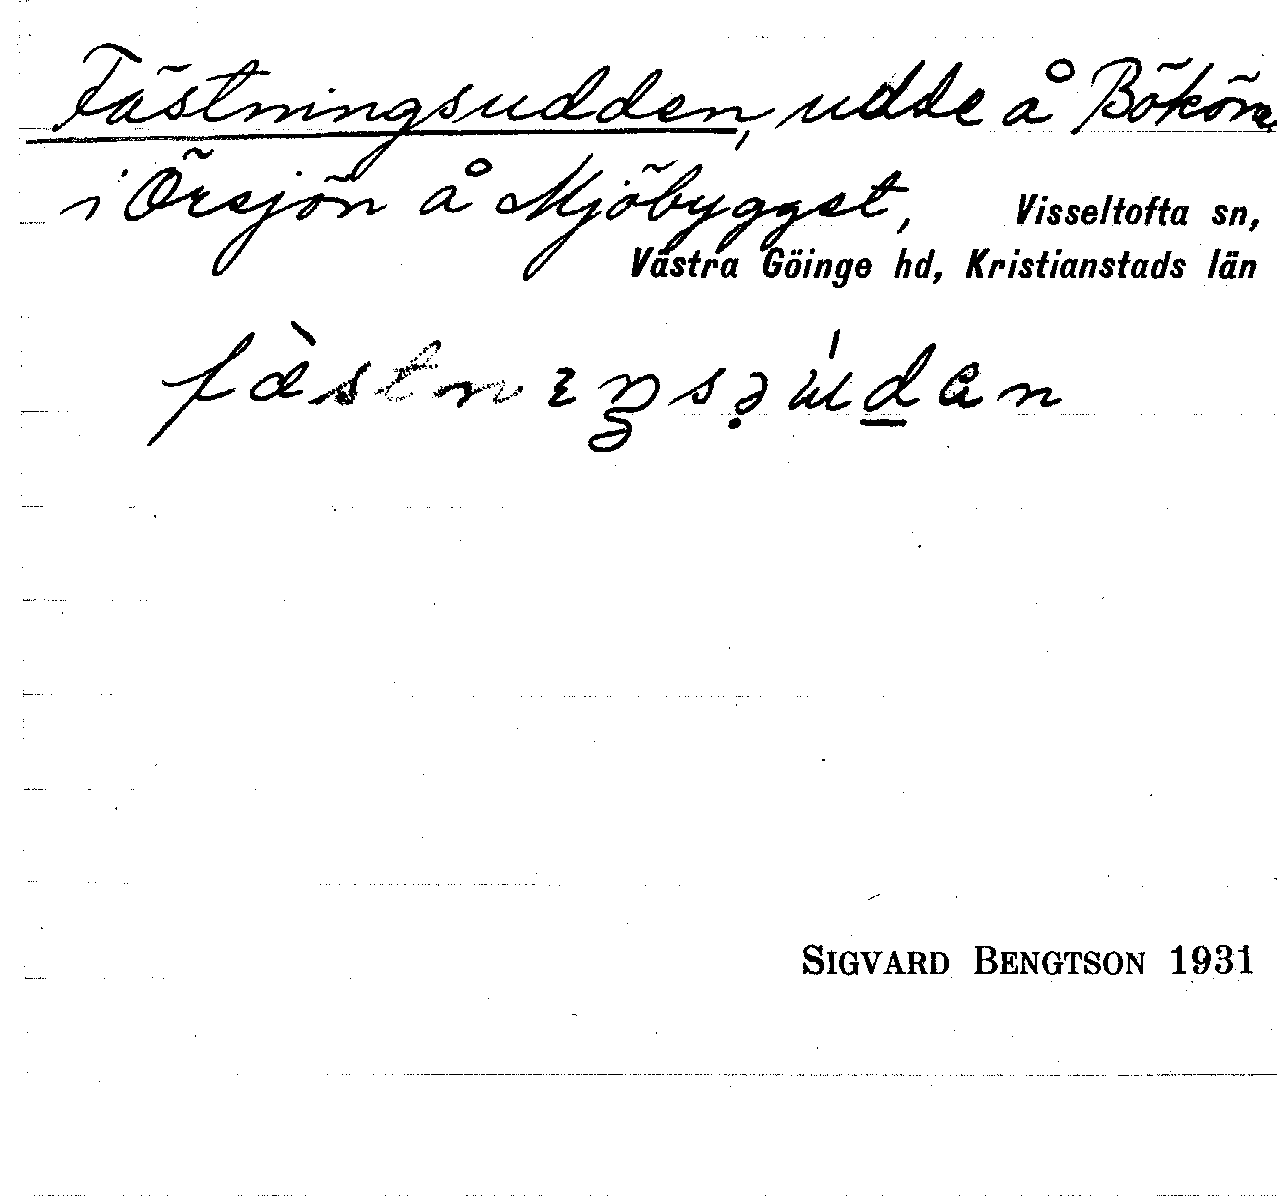 Fästningsudden, udde å Bökön
i Örsjön å Mjöbygget, Visseltofta sn,
Västra Göinge hd, Kristianstads län
SIGVARD BENGTSON 1931